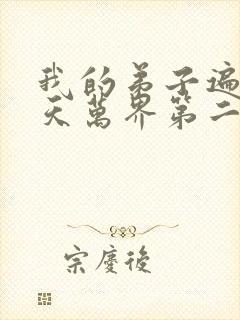 我的弟子遍
天萬界第二
宗慶後